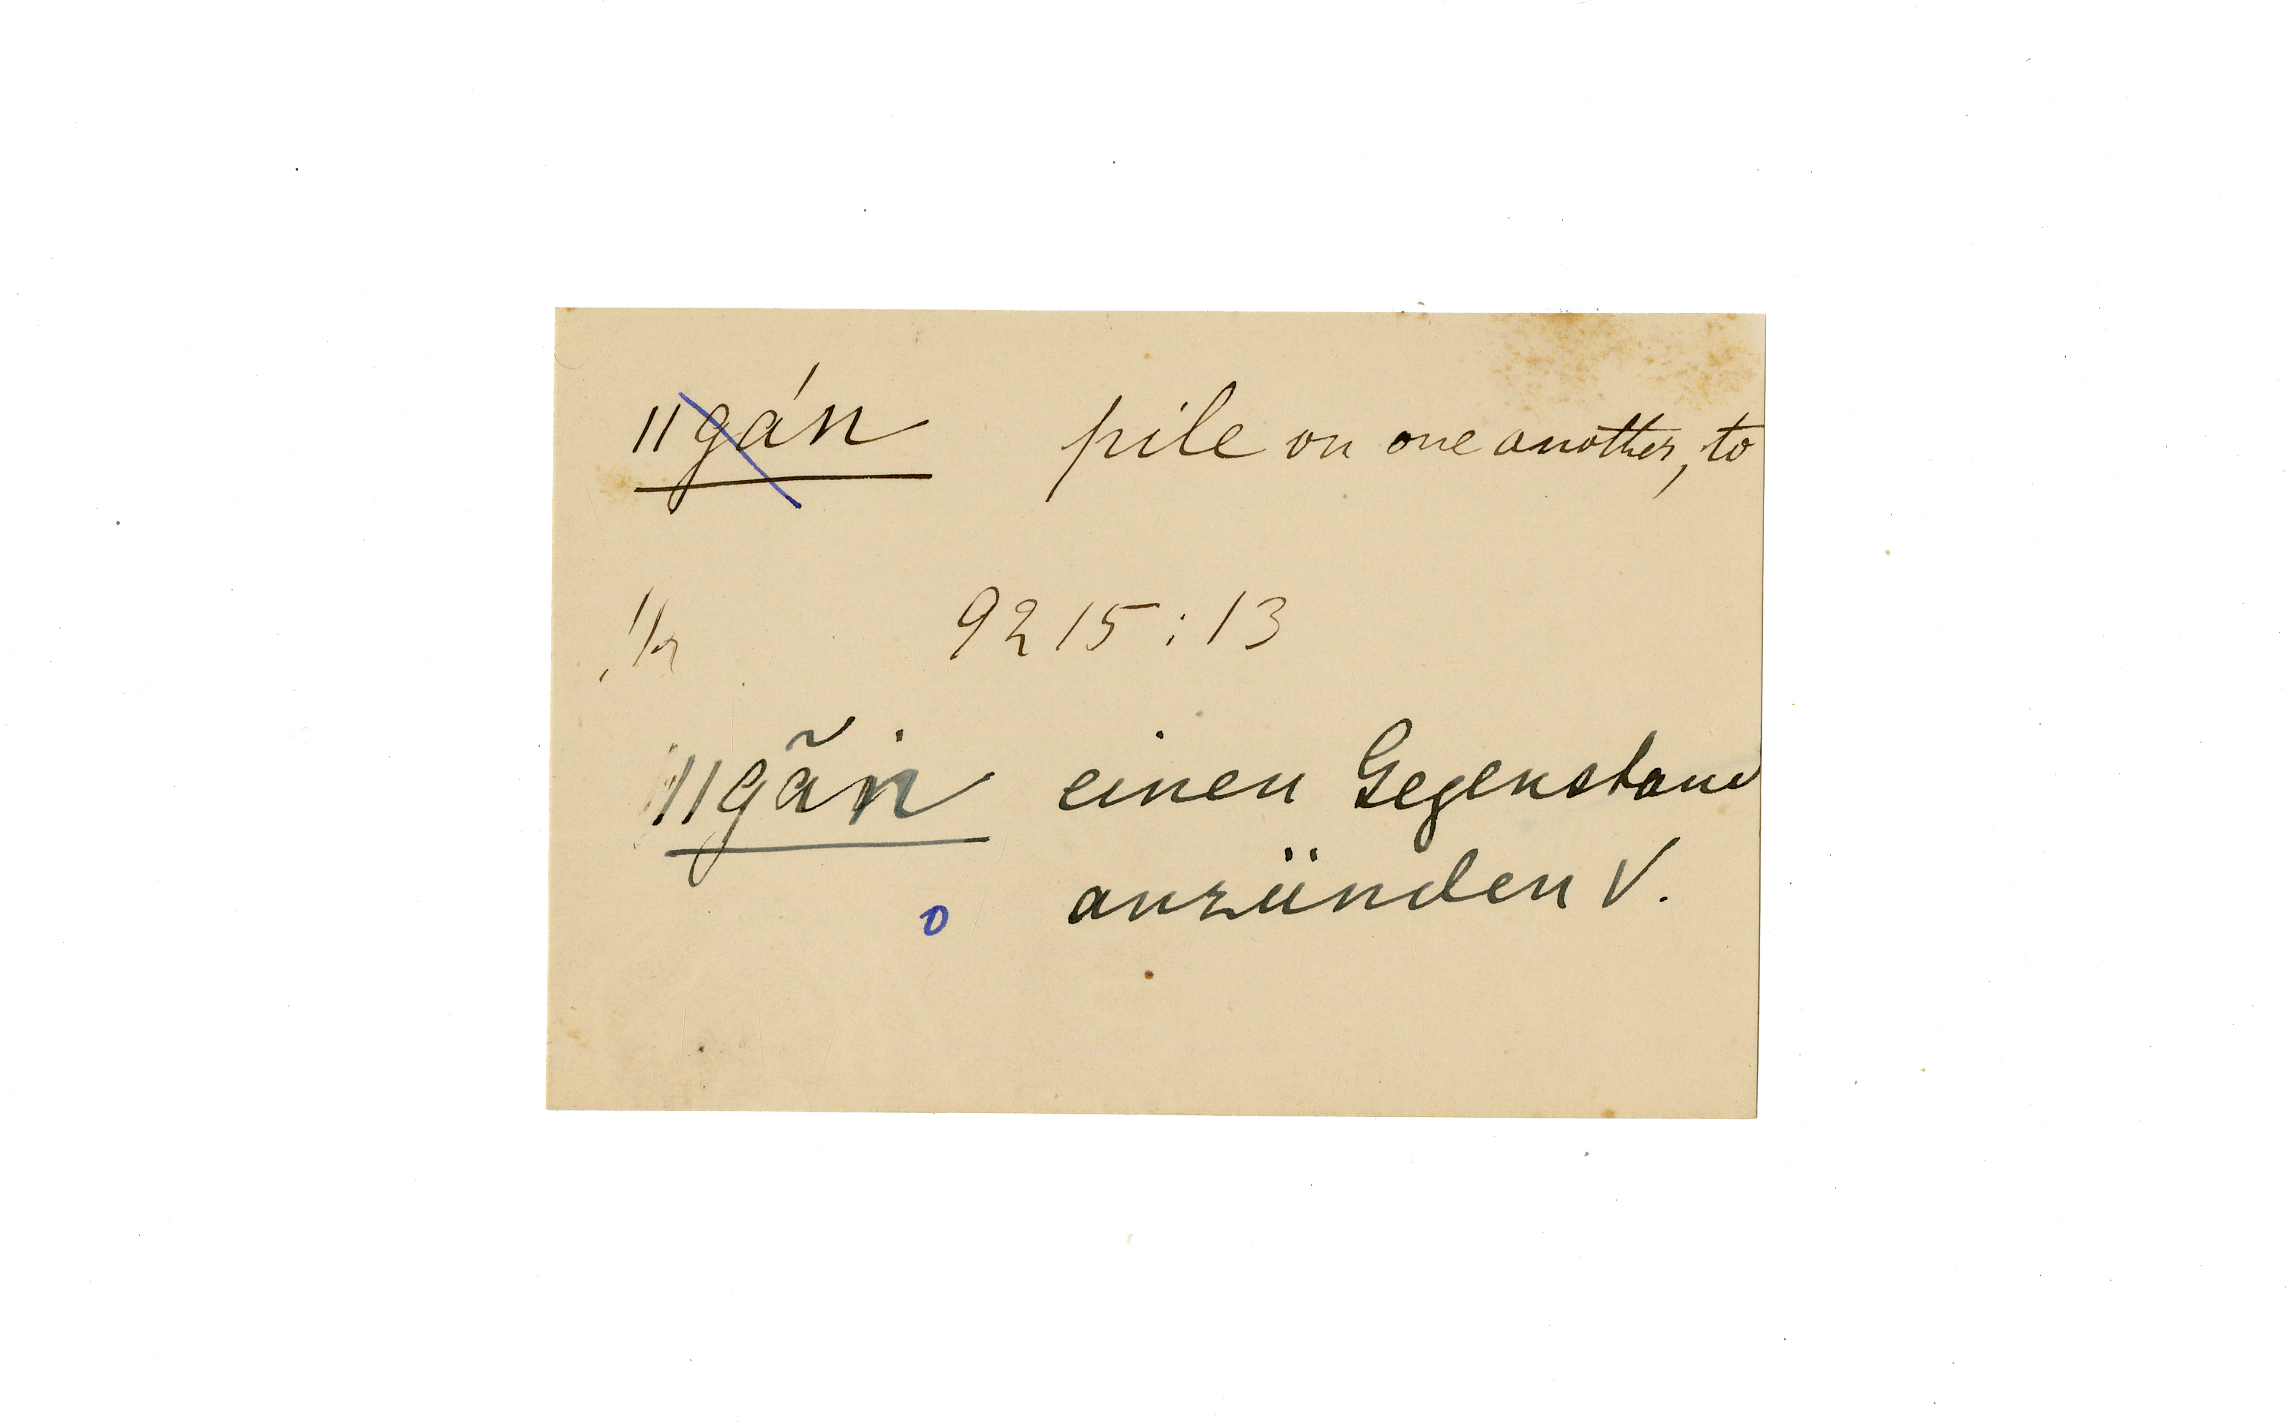 ǁgán pile on one another, to
9215:13
ǁgãṅ einen Gegenstand
anzünden V.
o